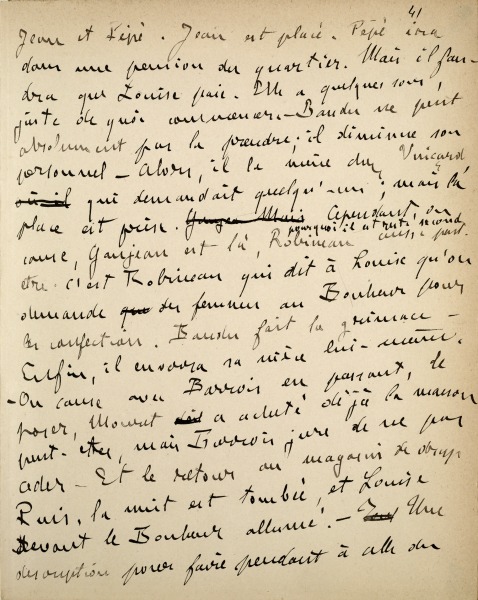 41
Jean et Pépé. Jean est placé. Pépé ira
dans une pension du quartier. Mais il fau-
dra que Louise paie. Elle a quelques sous,
juste de quoi commencer. – Baudu ne peut
absolument pas la prendre; il diminue son
personnel – Alors, il la mène chez Vinçard
où il qui demandait quelqu'un; mais la
place est prise. Mais Cependant, on
pourquoi il est resté second
cause, Gaujean est là, Robineau aussi peut-
être. C'est Robineau qui dit à Louise qu'on
demande que des femmes au Bonheur pour
la confection. Baudu fait la grimace –
Enfin, il enverra sa nièce lui-même.
– On cause avec Bourrois en passant, le
poser, Mouret a acheté déjà la maison
peut-être, mais Bourrois jure de ne pas
céder – Et le retour au magasin de draps
Puis, la nuit est tombée, et Louise
devant le Bonheur allumé. – Une
description pour faire pendant à celle du